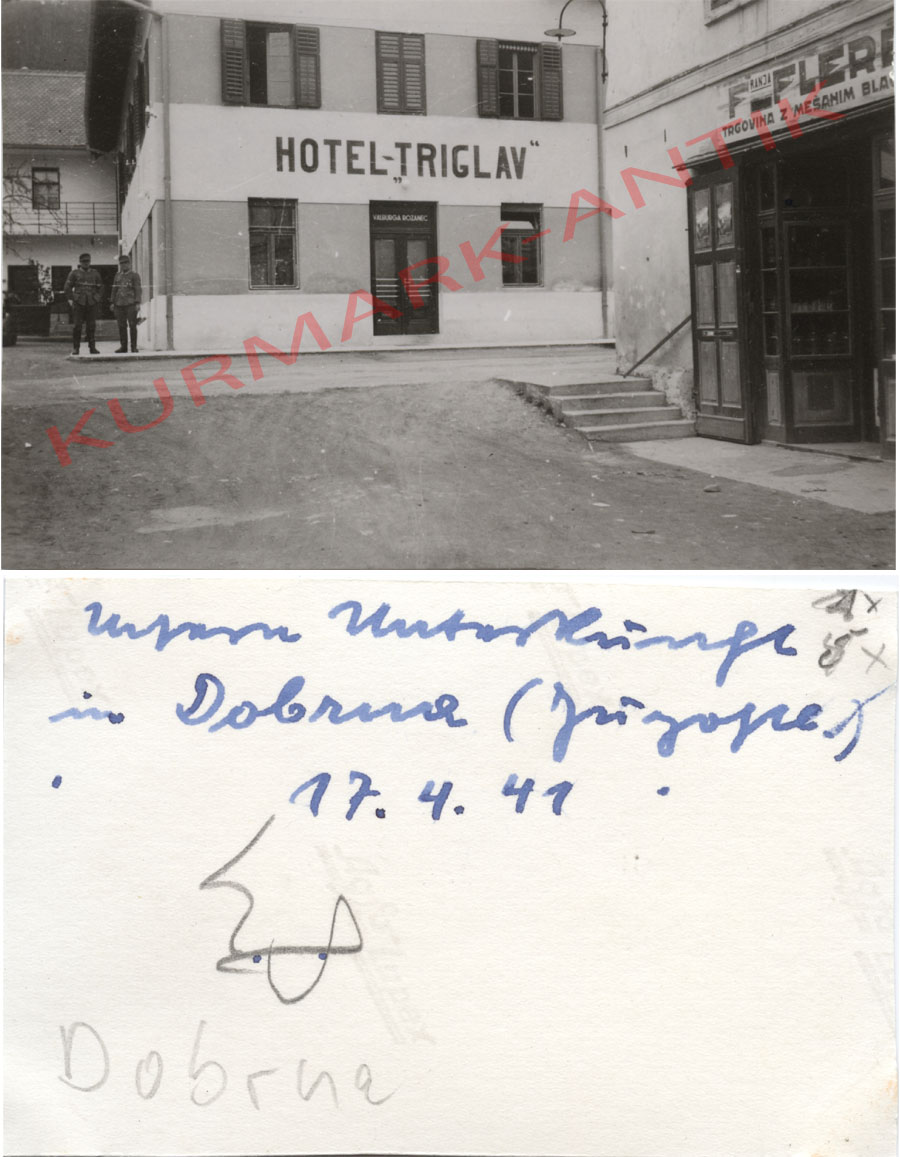 HOTEL-„TRIGLAV“
VALBURGA ROZANEC
MANJA
F. FLERE
TRGOVINA Z MEŠANIM BLA
KURMARK-ANTIK
Unsere Unterkunft
in Dobrna (Jugosla.)
17.4.41
Dobrna